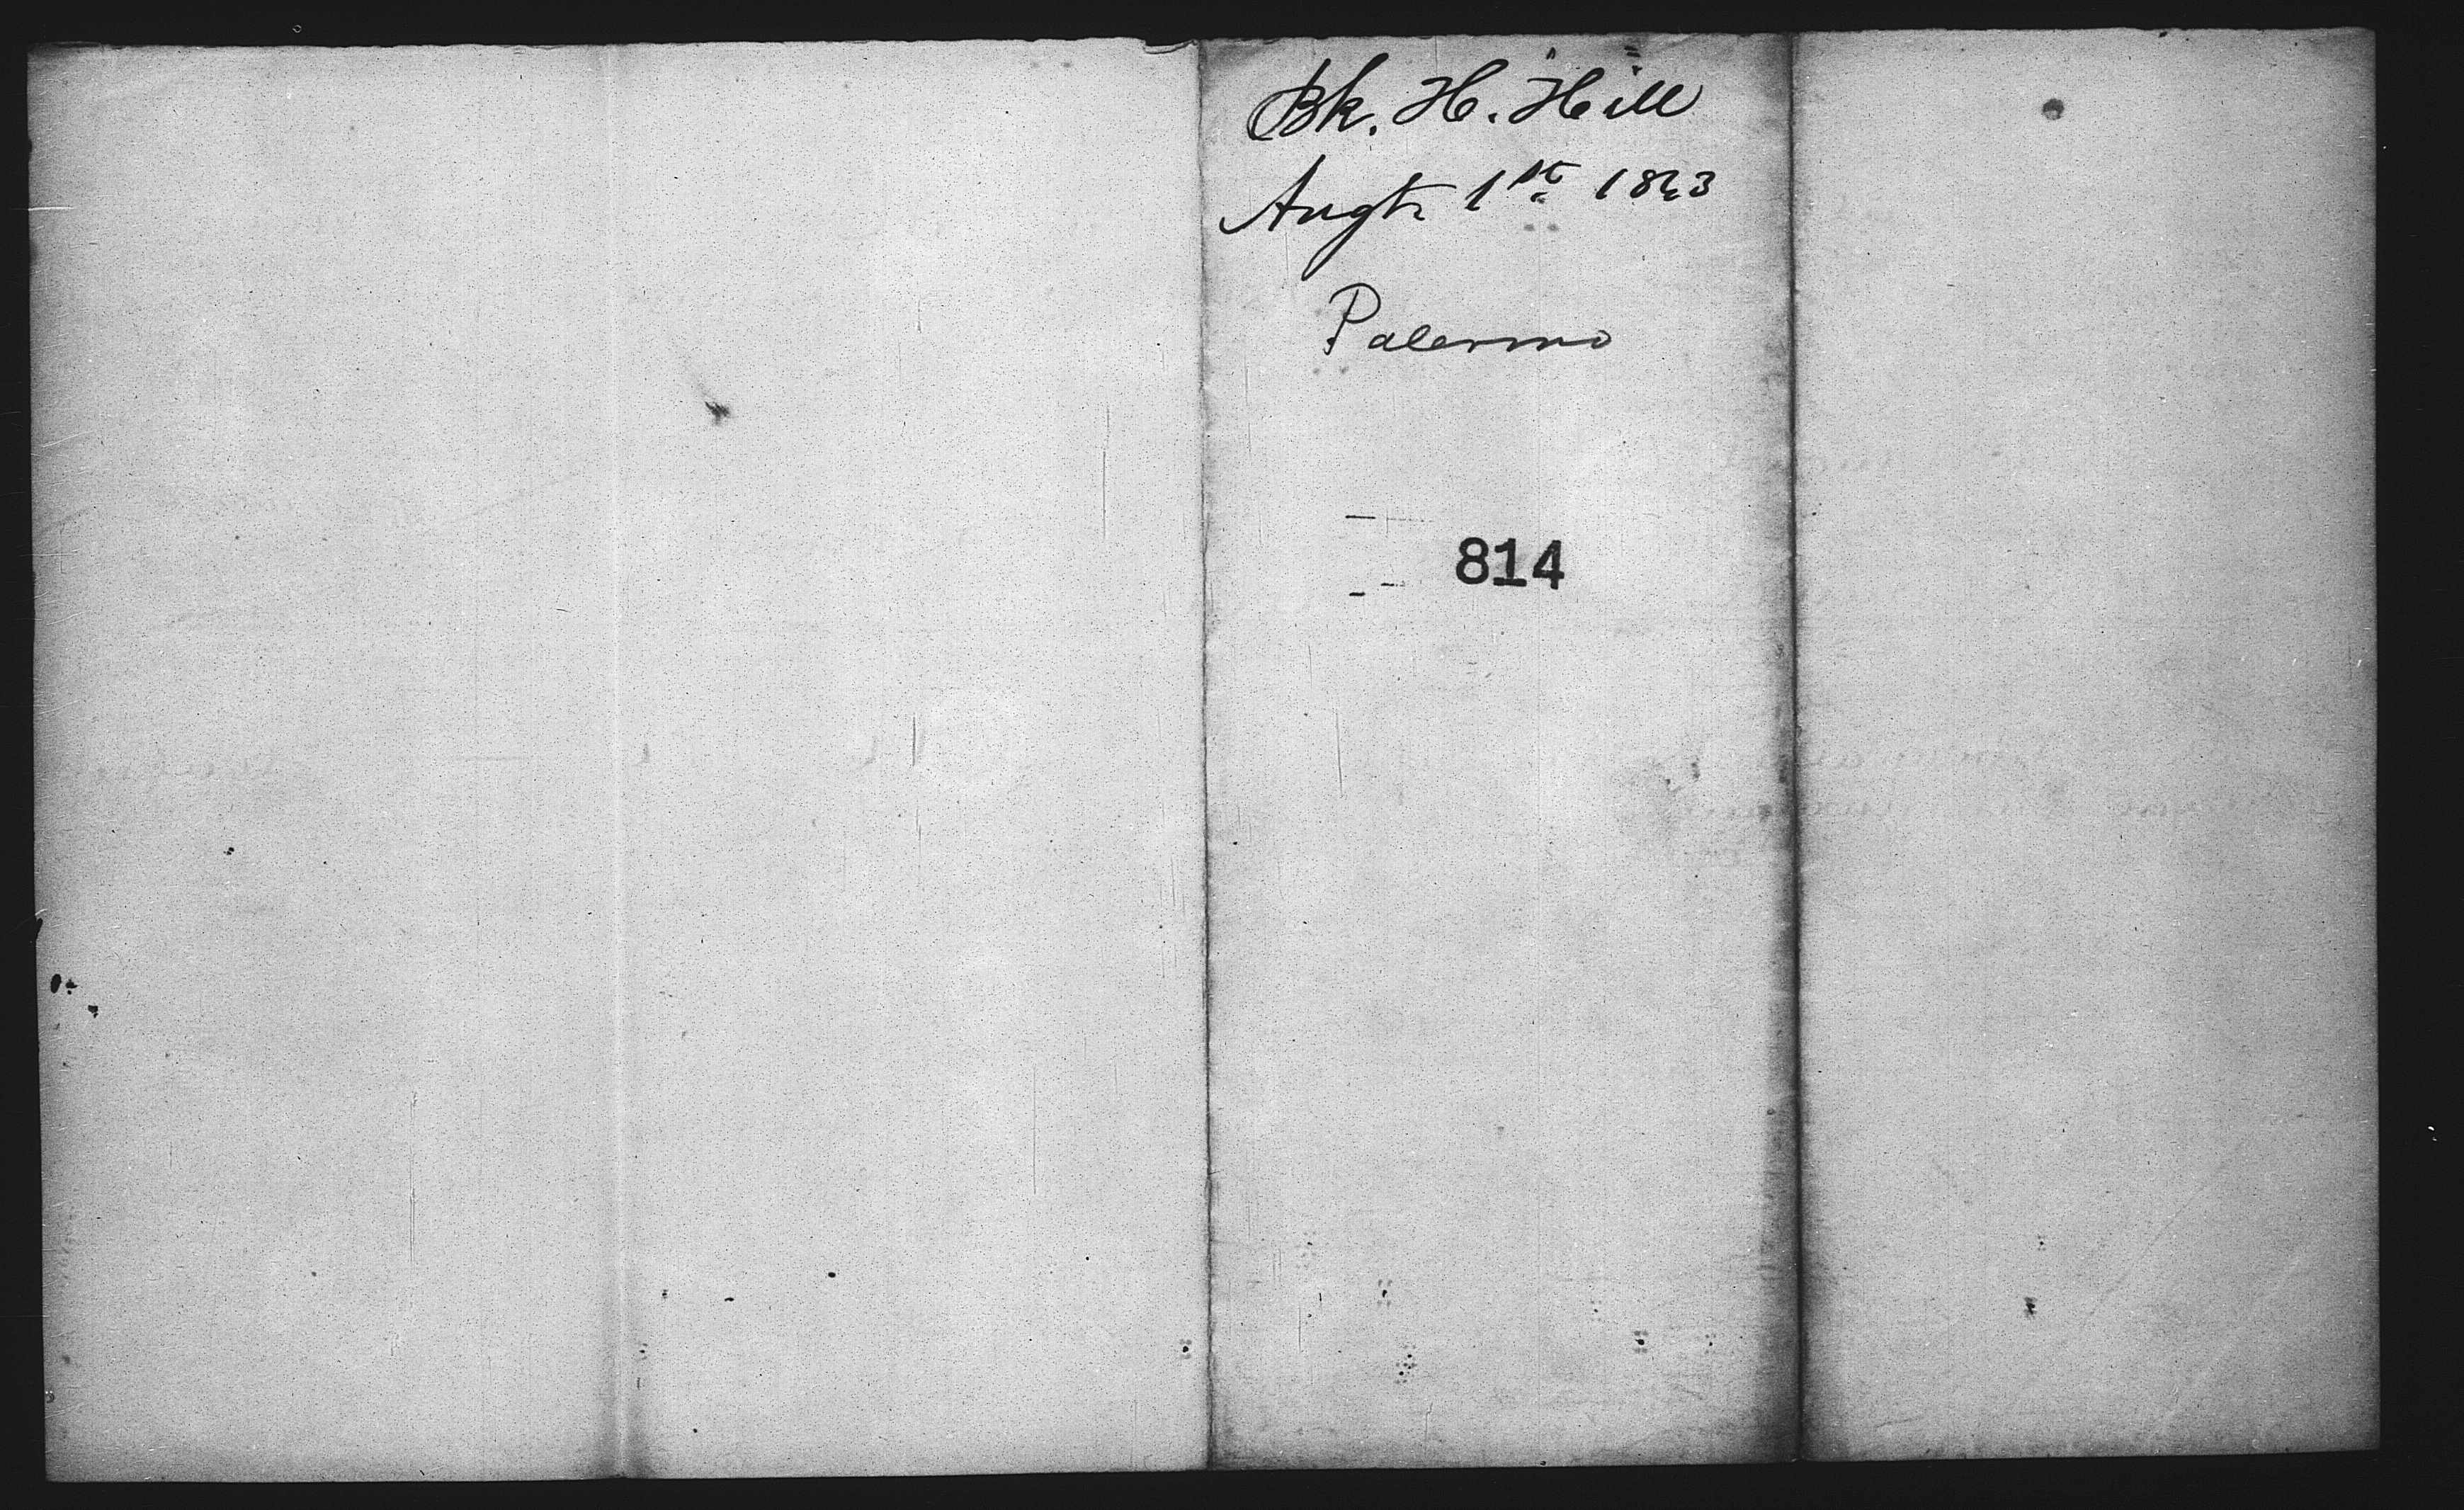 Bk. H. Hill
Augt. 1st 1843
Palermo
814